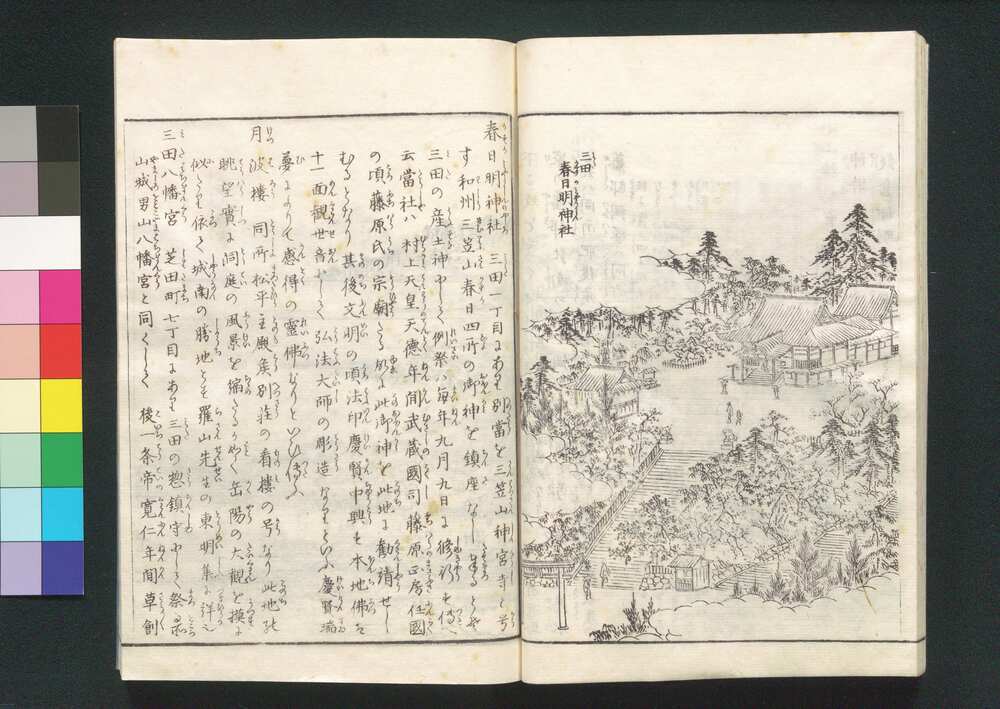 三田
春日明神社
春日明神社 三田一丁目にあり別當を三笠山神宮寺と号
す和州三笠山春日四所の御神を鎮座なし奉るとぞ
三田の産土神にして例祭ハ毎年九月九日に修行す傳へ
云當社ハ 村上天皇天德年間武蔵國司藤原正房任國
の頃藤原氏の宗廟たる故に此御神を此地に勸請せし
むるとなり其後文明の頃法印慶賢中興す本地佛は
十一面觀世音にして弘法大師の彫造なりといふ慶賢瑞
夢によりて感得の靈佛なりといひ傳ふ
月波樓 同所松平主殿矦別荘の看樓の号なり此地の
眺望實に洞庭の風景を縮たるがごとく岳陽の大觀を摸に
似たり依て城南の勝地とす羅山先生の東明集に詳也
三田八幡宮 芝田町七丁目にあり三田の惣鎮守にして祭る所
山城男山八幡宮と同くして後一条帝寛仁年間草創